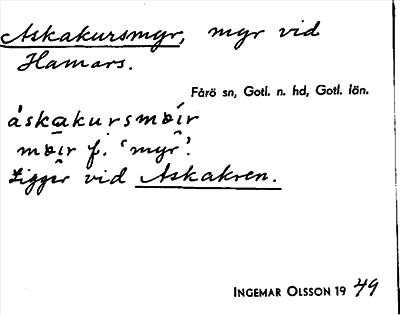 Askakursmyr, myr vid
Hamars.
Fårö sn, Gotl. n. hd, Gotl. län.
áskakursmɒír
mɒir f. 'myr'.
Ligger vid Askakren.
INGEMAR OLSSON 1949